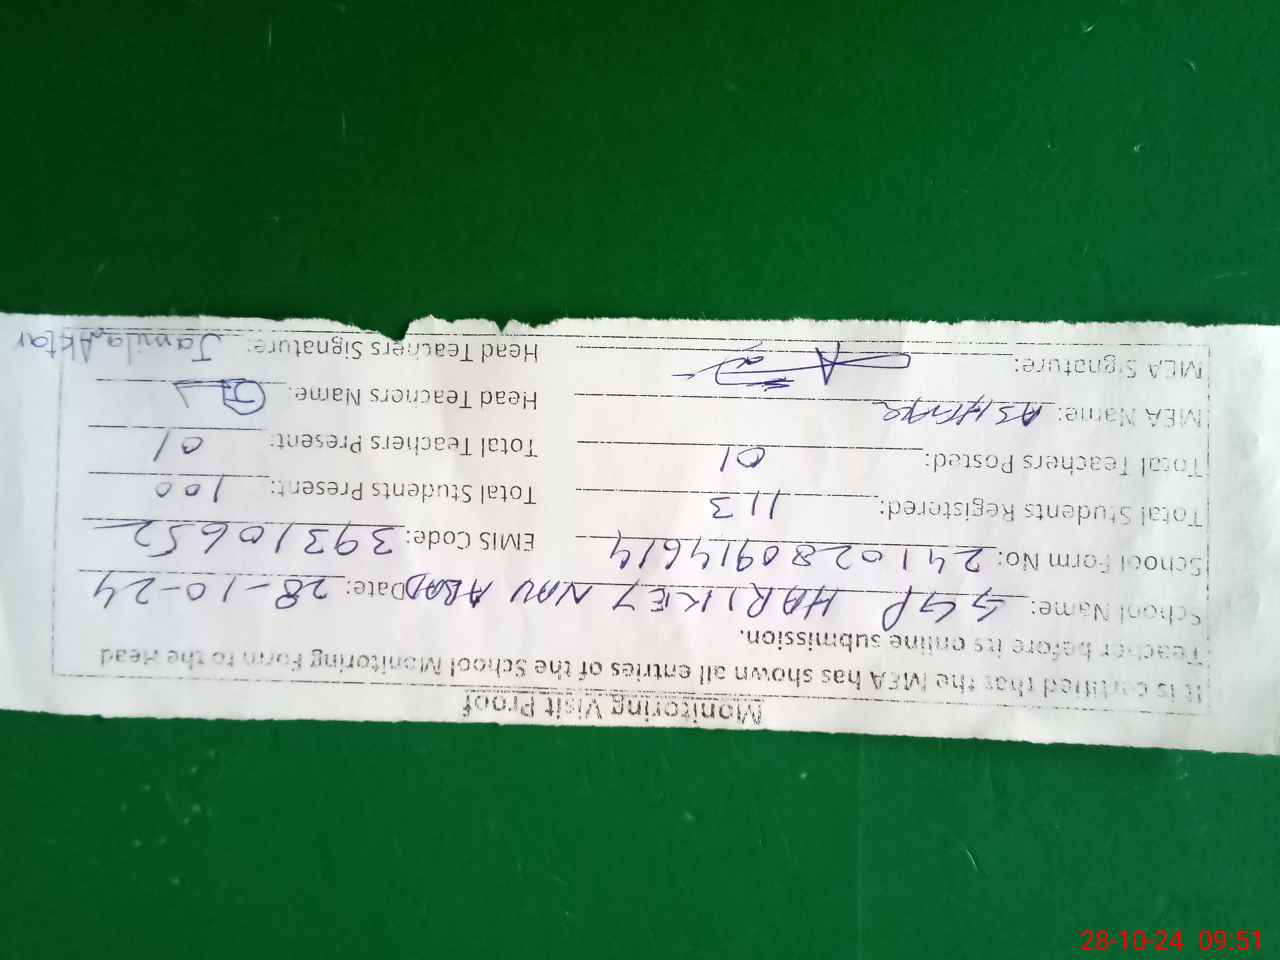 Monitoring Visit Proof
It is certified that the MEA has shown all entries of the School Monitoring Form to the Head
Teacher before its online submission.
School Name: GGP HARIKEY NAU ABAD Date: 28-10-24
School Form No: 2410280914614 EMIS Code: 39310652
Total Students Registered: 113 Total Students Present: 100
Total Teachers Posted: 01 Total Teachers Present: 01
MEA Name: Head Teachers Name:
MEA Signature: Head Teachers Signature: Jamila Aktar
28-10-24 09:51